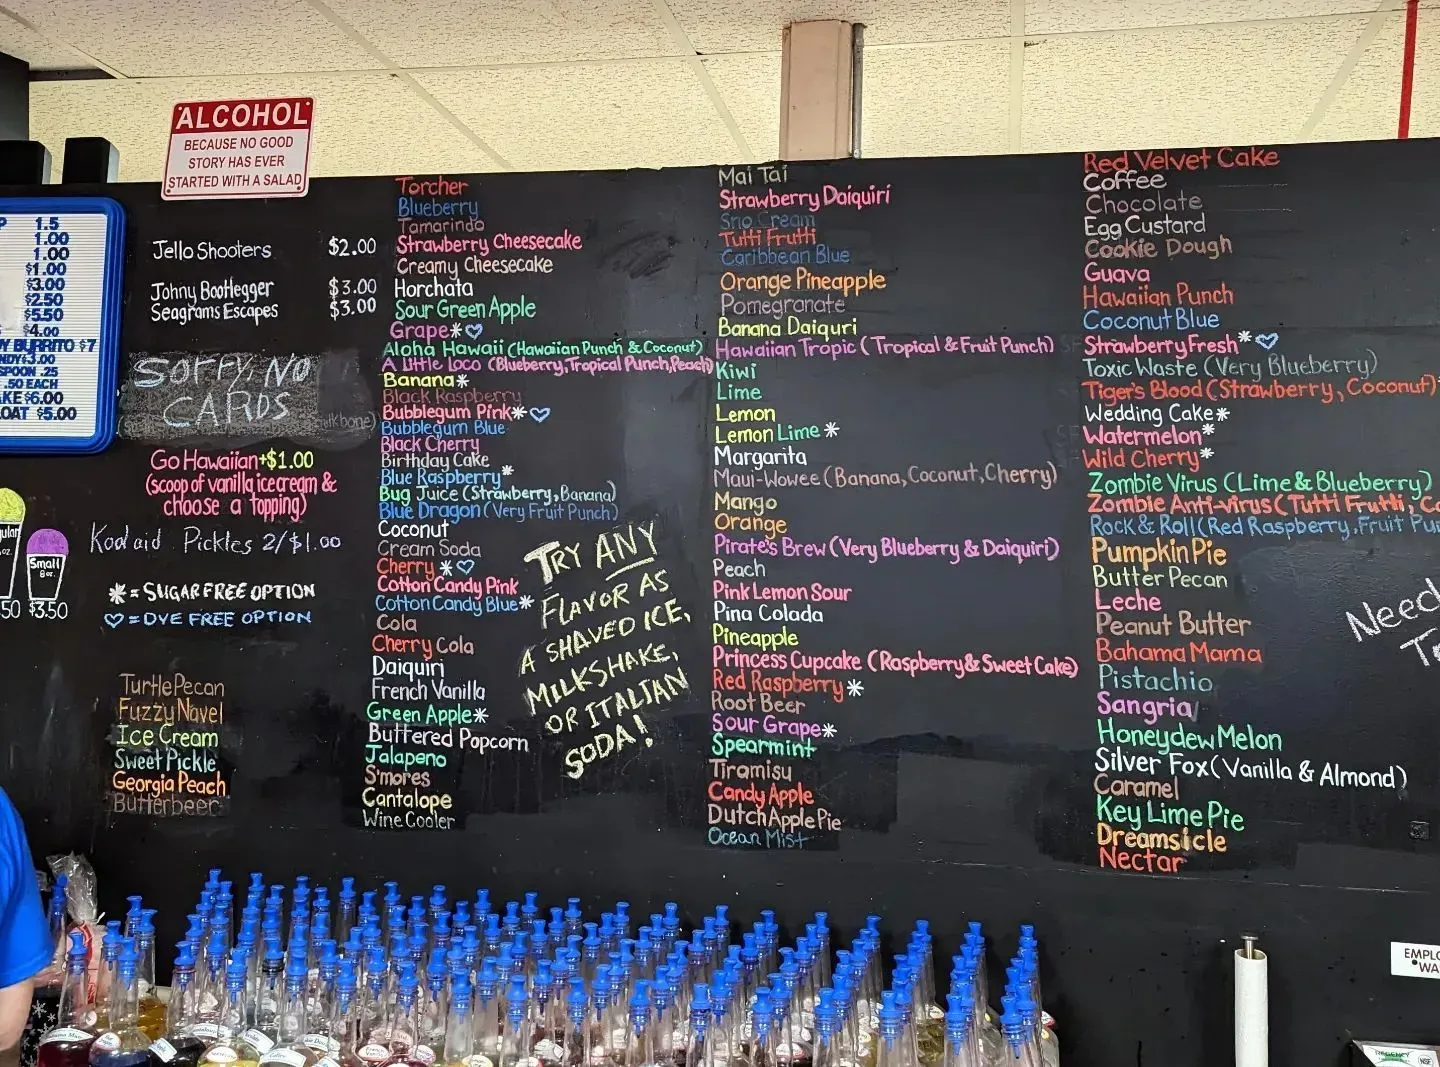 ALCOHOL
BECAUSE NO GOOD
STORY HAS EVER
STARTED WITH A SALAD
1.5
1.00
1.00
$1.00
$3.00
$2.50
$5.50
$4.00
BURRITO $7
$3.00
SPOON .25
.50 EACH
$6.00
$5.00
Jello Shooters $2.00
Johny Bootlegger $3.00
Seagrams Escapes $3.00
SORRY, NO
CARDS
Go Hawaiian +$1.00
(scoop of vanilla icecream &
choose a topping)
Koolaid Pickles 2/$1.00
Small
8 oz.
$3.50
* = SUGAR FREE OPTION
♡ = DYE FREE OPTION
Turtle Pecan
Fuzzy Navel
Ice Cream
Sweet Pickle
Georgia Peach
Butterbeer
Torcher
Blueberry
Tamarindo
Strawberry Cheesecake
Creamy Cheesecake
Horchata
Sour Green Apple
Grape*♡
Aloha Hawaii (Hawaiian Punch & Coconut)
A Little Loco (Blueberry, Tropical Punch, Peach)
Banana*
Black Raspberry
Bubblegum Pink*♡
Bubblegum Blue
Black Cherry
Birthday Cake
Blue Raspberry*
Bug Juice (Strawberry, Banana)
Blue Dragon (Very Fruit Punch)
Coconut
Cream Soda
Cherry *♡
Cotton Candy Pink
Cotton Candy Blue*
Cola
Cherry Cola
Daiquiri
French Vanilla
Green Apple*
Buttered Popcorn
Jalapeno
S'mores
Cantalope
Wine Cooler
TRY ANY
FLAVOR AS
A SHAVED ICE,
MILKSHAKE,
OR ITALIAN
SODA!
Mai Tai
Strawberry Daiquiri
Sno Cream
Tutti Frutti
Caribbean Blue
Orange Pineapple
Pomegranate
Banana Daiquri
Hawaiian Tropic (Tropical & Fruit Punch)
Kiwi
Lime
Lemon
Lemon Lime *
Margarita
Maui-Wowee (Banana, Coconut, Cherry)
Mango
Orange
Pirate's Brew (Very Blueberry & Daiquiri)
Peach
Pink Lemon Sour
Pina Colada
Pineapple
Princess Cupcake (Raspberry & Sweet Cake)
Red Raspberry*
Root Beer
Sour Grape*
Spearmint
Tiramisu
Candy Apple
Dutch Apple Pie
Ocean Mist
Red Velvet Cake
Coffee
Chocolate
Egg Custard
Cookie Dough
Guava
Hawaiian Punch
Coconut Blue
Strawberry Fresh*♡
Toxic Waste (Very Blueberry)
Tiger's Blood (Strawberry, Coconut)*
Wedding Cake*
Watermelon*
Wild Cherry*
Zombie Virus (Lime & Blueberry)
Zombie Anti-virus (Tutti Frutti,
Rock & Roll (Red Raspberry, Fruit
Pumpkin Pie
Butter Pecan
Leche
Peanut Butter
Bahama Mama
Pistachio
Sangria
Honeydew Melon
Silver Fox (Vanilla & Almond)
Caramel
Key Lime Pie
Dreamsicle
Nectar
Need